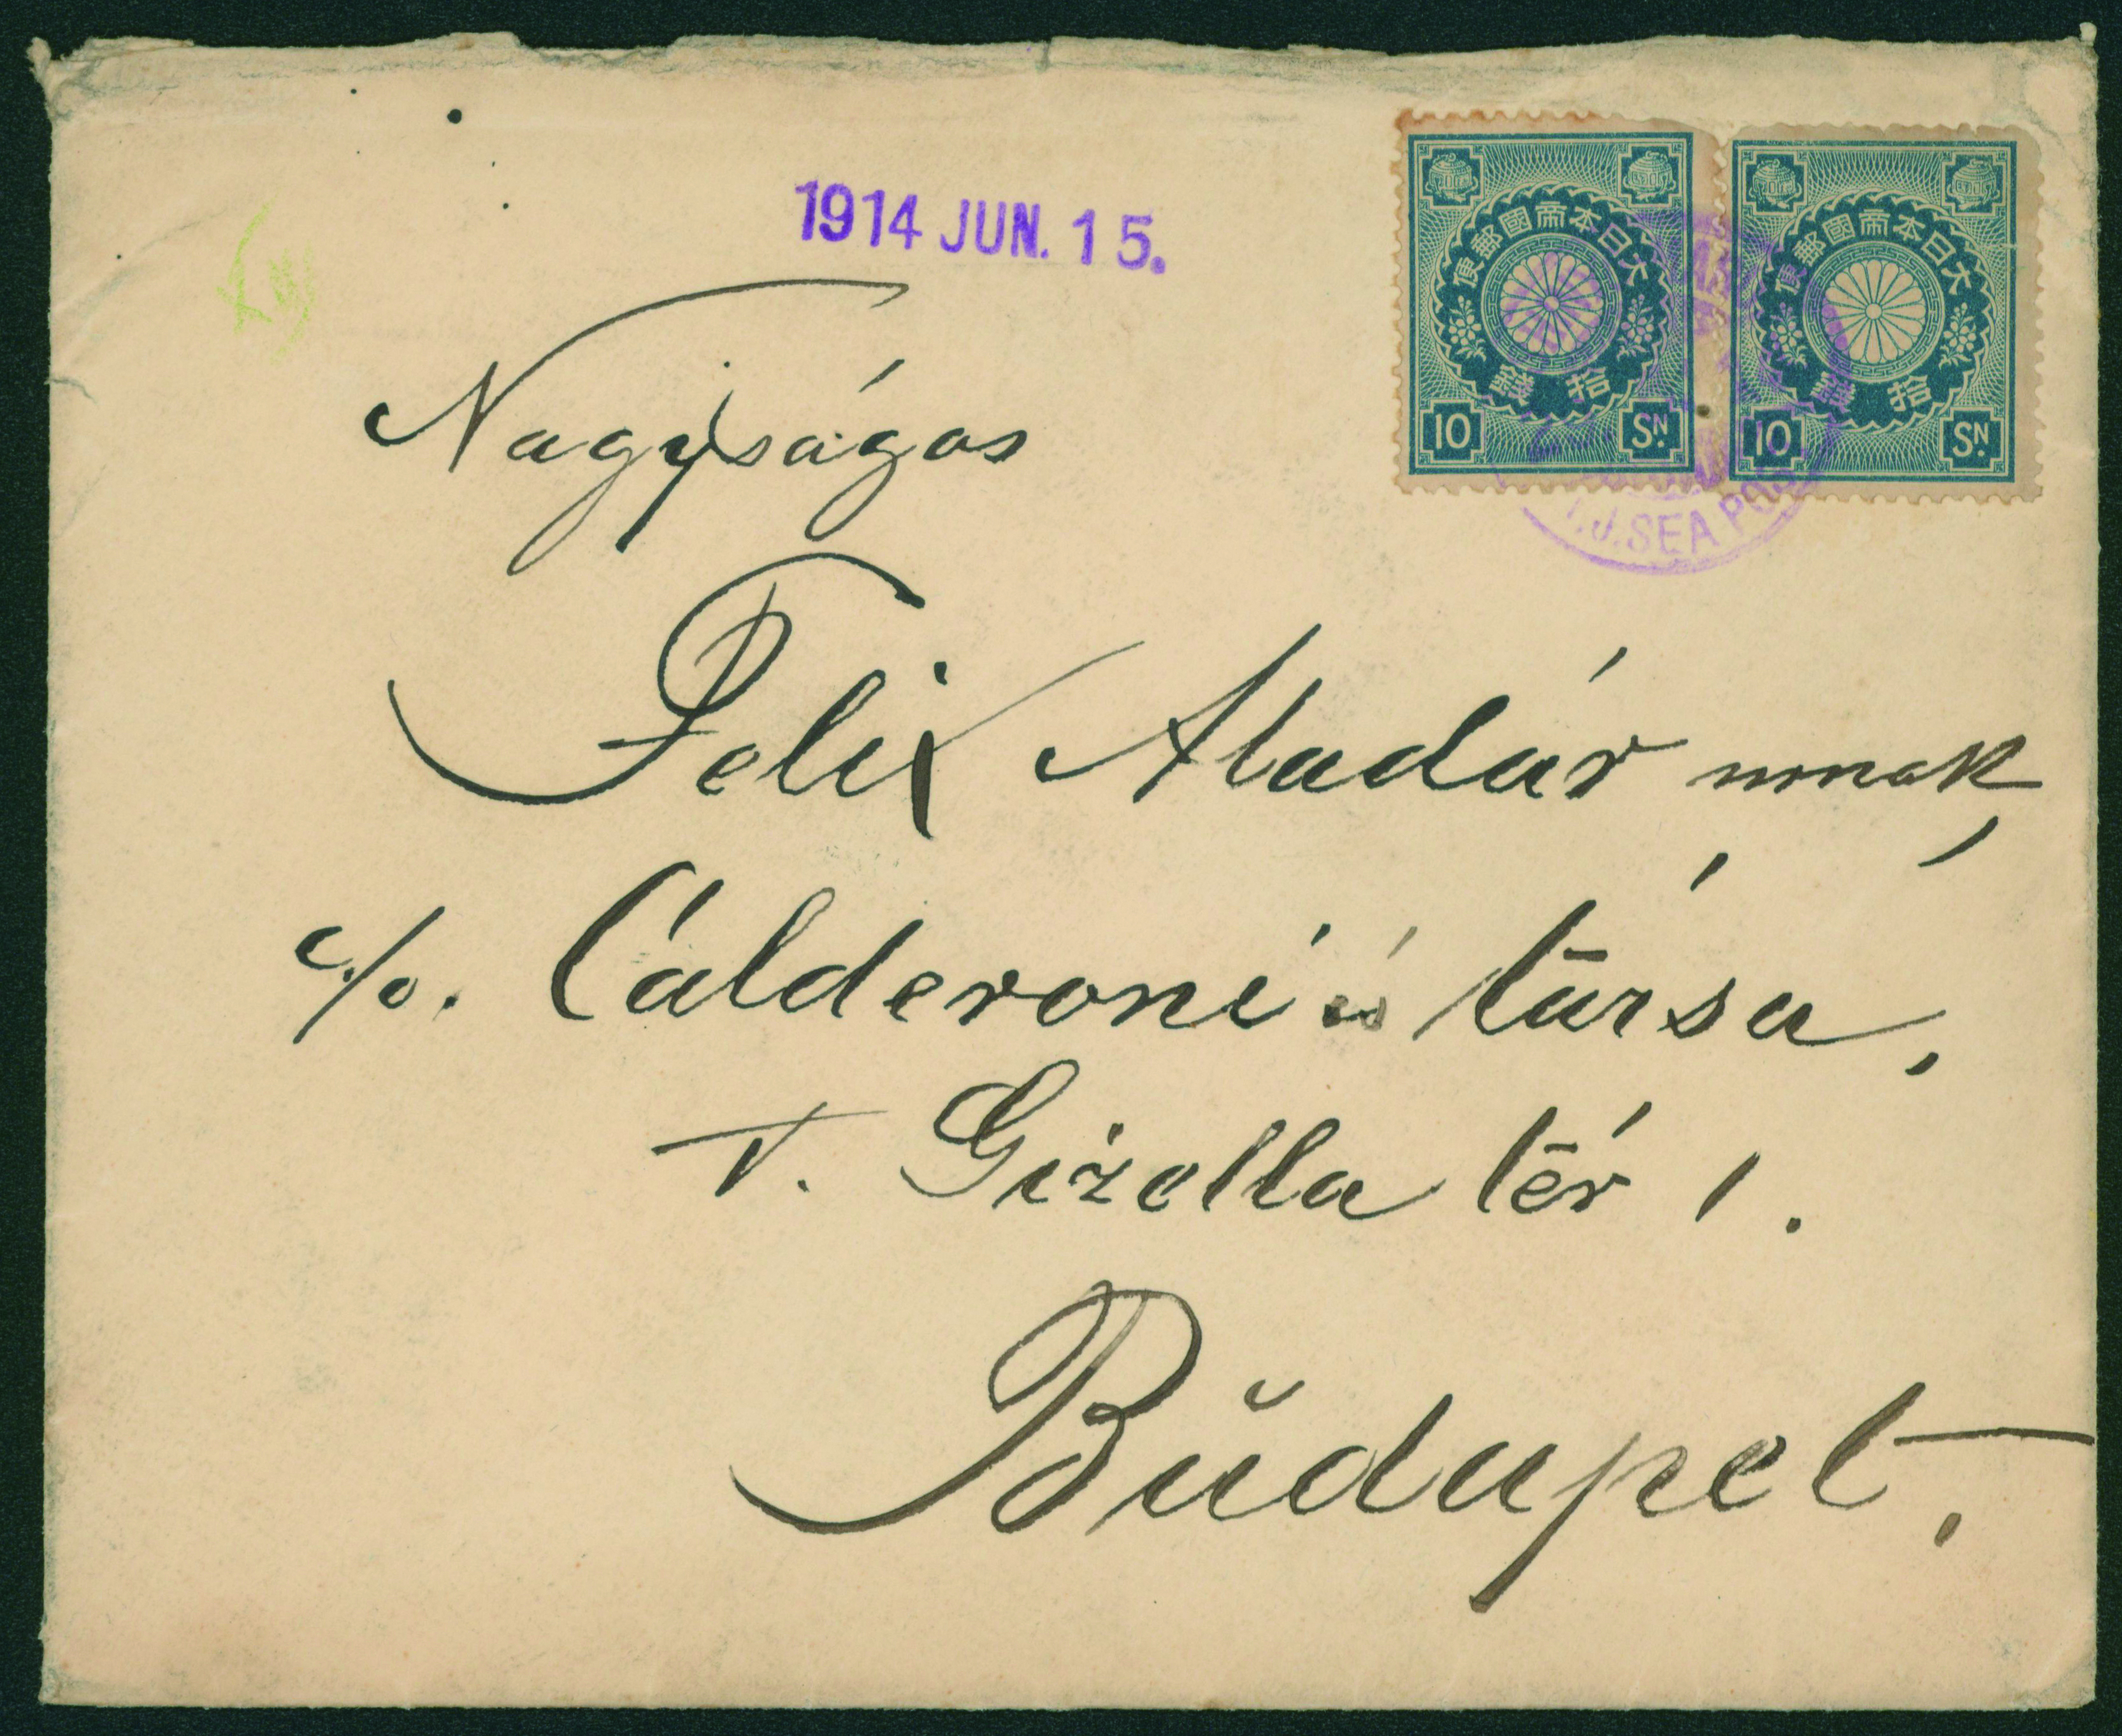 1914 JUN. 15.
大日本帝國郵便
拾錢
10 SN.
大日本帝國郵便
拾錢
10 SN.
I.J.SEA POST
Nagyságos
Felix Aladár urnak,
c/o. Calderoni és társa,
V. Gizella tér 1.
Budapet.